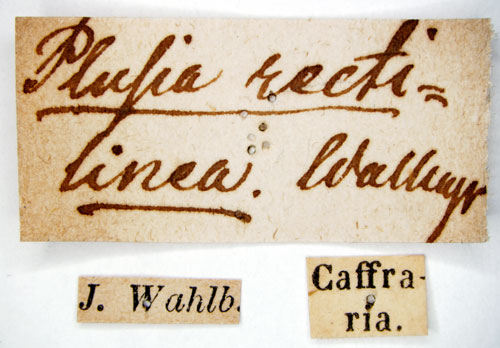 Plusia recti=
linea. Wallengr
J. Wahlb.
Caffra-
ria.